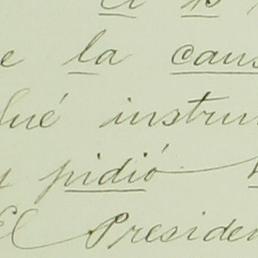 el 15
e la caus
fué instru
y pidió
El Presiden